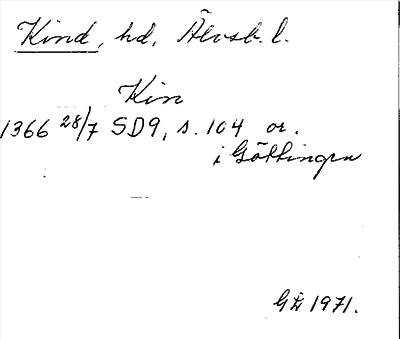 Kind, hd, Älvsb. l.
Kin
1366 28/7 SD9, s. 104 or.
i Göttingen
1971.